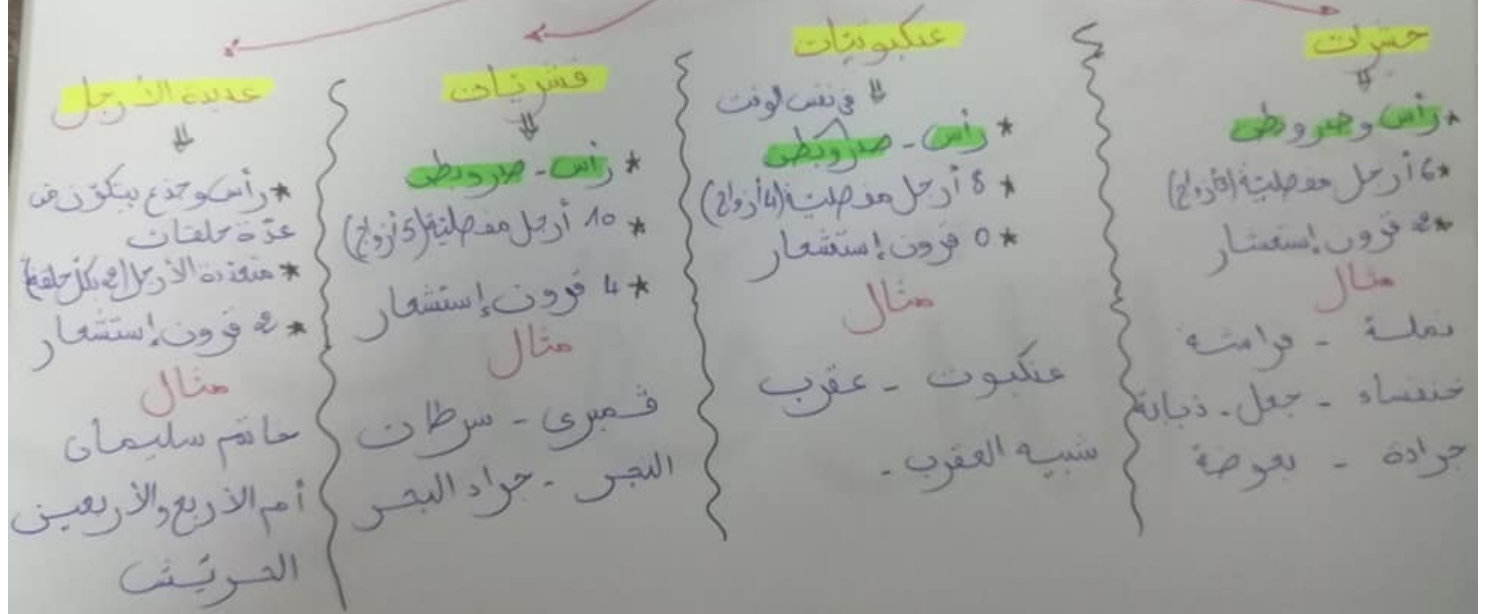 حشرات
⇓
* رأس و صدر و بطن
* 6 أرجل مفصلية (3 أزواج)
* 2 قرون إستشعار
مثال
نملة - فراشة
خنفساء - جعل - ذبابة
جرادة - بعوضة
عنكبوتيات
⇓ في نفس الوقت
* رأس - صدر و بطن
* 8 أرجل مفصلية (4 أزواج)
* 0 قرون إستشعار
مثال
عنكبوت - عقرب
شبيه العقرب -
قشريات
⇓
* رأس - صدر و بطن
* 10 أرجل مفصلية (5 أزواج)
* 4 قرون إستشعار
مثال
قمبري - سرطان
البحر - جراد البحر
عديدة الأرجل
⇓
* رأس و جذع يتكون من
عدّة حلقات
* متعددة الأرجل (2 بكل حلقة)
* 2 قرون إستشعار
مثال
خاتم سليمان
أم الأربع والأربعين
الحريش